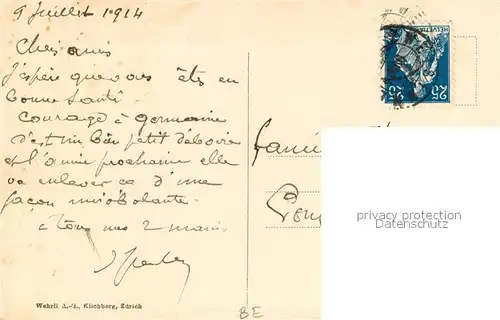 9 Juillet 1914
Chers amis
J'espère que vous êtes en
bonne santé.
Courage à Germaine
c'est un bien petit déboire
et l'année prochaine elle
va enlever ça d'une
façon mirobolante.
à tous mes 2 mains
HELVETIA
25 25
privacy protection
watermark
Wehrli A.-G., Kilchberg, Zürich
BE